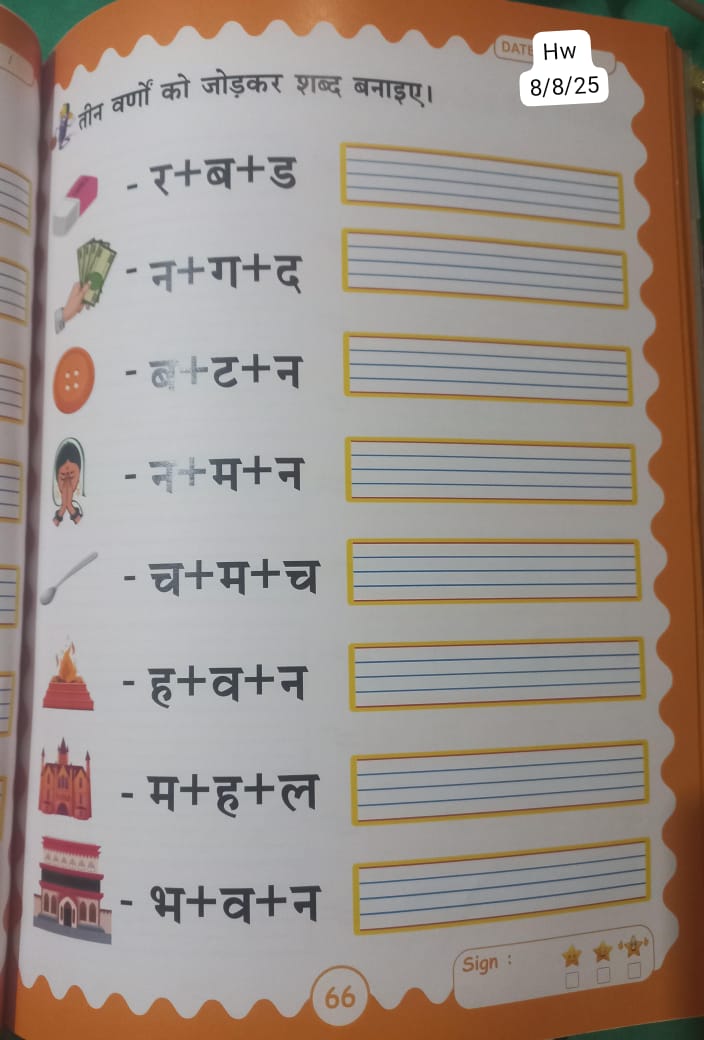 DATE
Hw
8/8/25
तीन वर्णों को जोड़कर शब्द बनाइए।
- र+ब+ड
- न+ग+द
- ब+ट+न
- न+म+न
- च+म+च
- ह+व+न
- म+ह+ल
- भ+व+न
Sign :
66